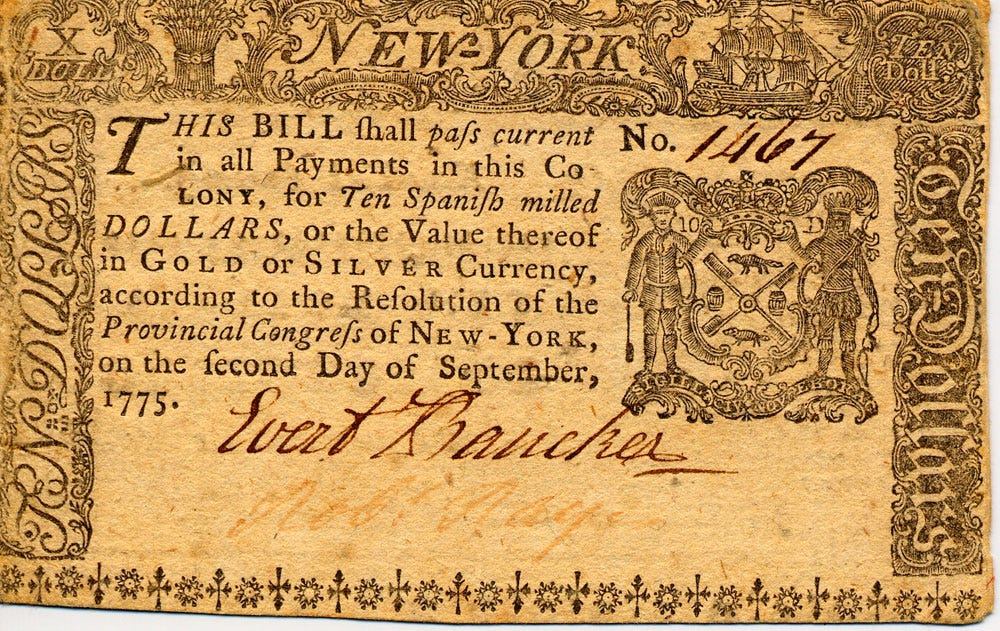 X
DOLL
NEW-YORK.
TEN
Doll
TEN DOLLARS
THIS BILL ſhall paſs current
in all Payments in this Co-
LONY, for Ten Spaniſh milled
DOLLARS, or the Value thereof
in GOLD or SILVER Currency,
according to the Reſolution of the
Provincial Congreſs of NEW-YORK,
on the ſecond Day of September,
1775.
No. 1467
10 D
Ten Dollars
Evert Bancker
Robt Ray